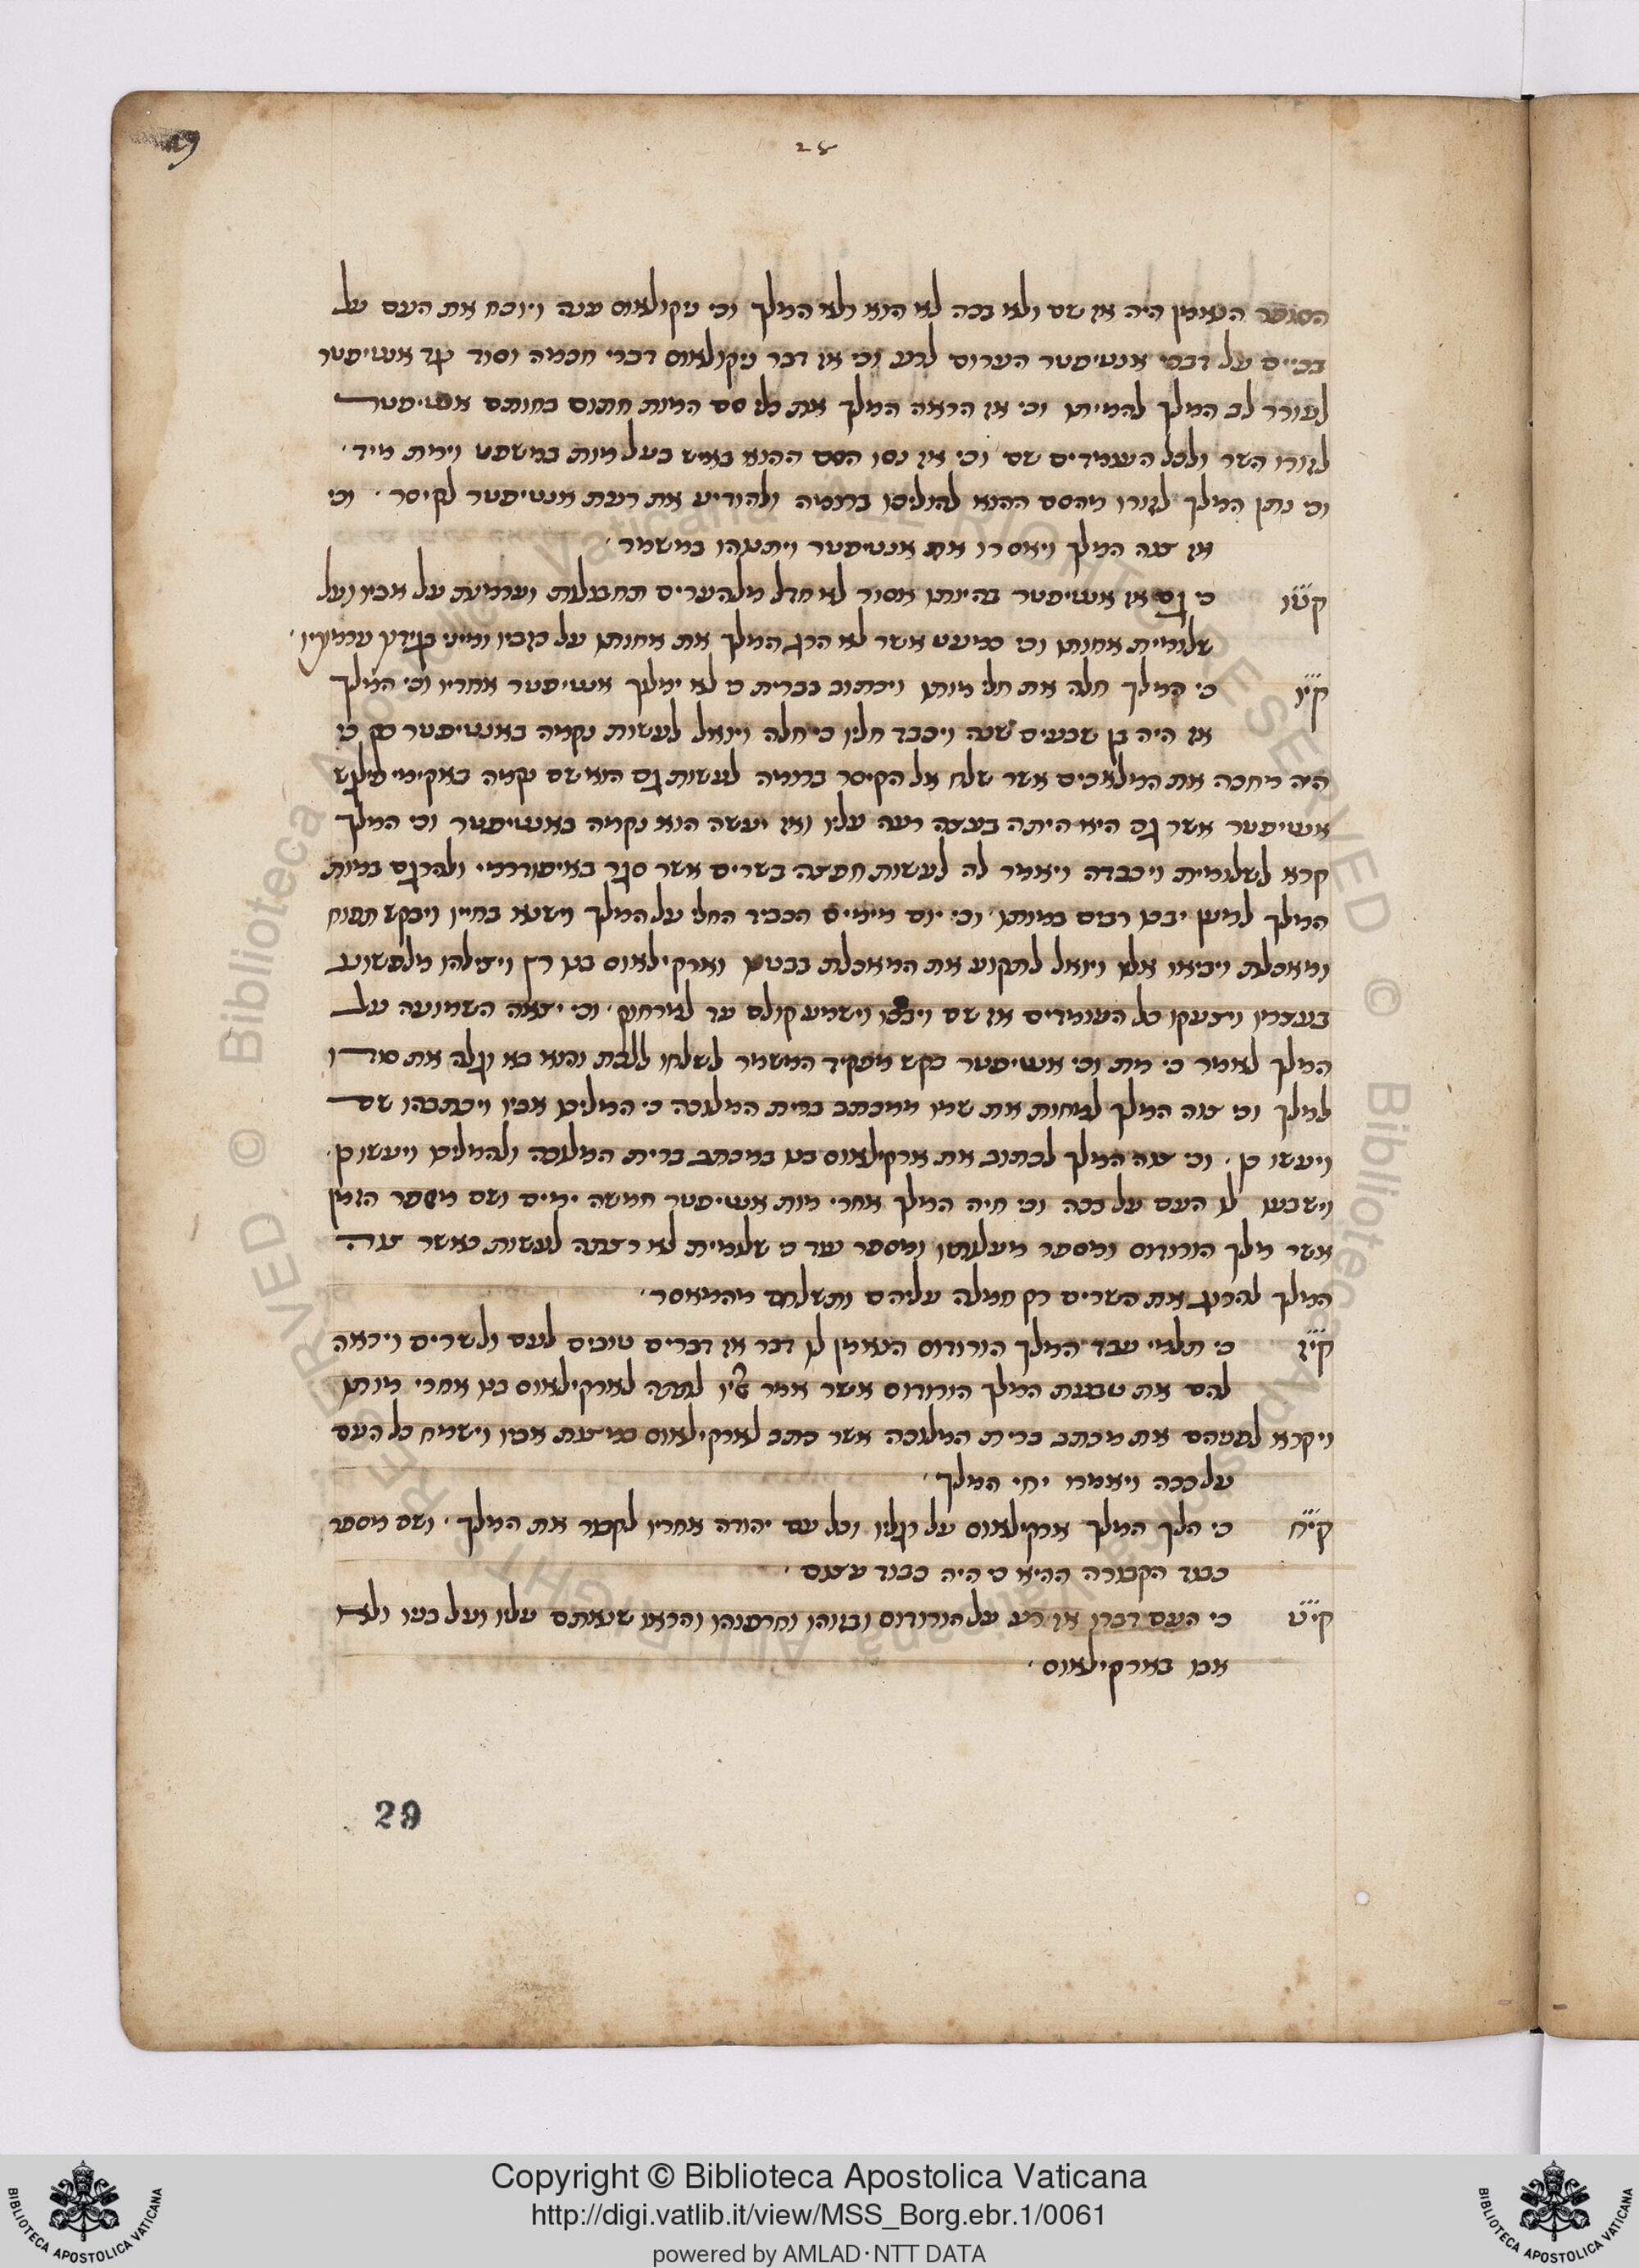 29
28
הסופר הנאמן היה אז שם ולא בכה לא הוא ולא המלך וכי ניקולאוס ענה ויוכח את העם על
בכיים על דברי אנטיפטר הערום לרע וכי אז דבר ניקולאוס דברי חכמה וסוד נגד אנטיפטר
לעורר לב המלך להמיתו וכי אז הראה המלך את כלי סם המות חתום בחותם אנטיפטר
לוורו השר ולכל העומדים שם וכי אז נסו הסם ההוא באיש בעל מות במשפט וימת מיד
וכי נתן המלך לוורו מהסם ההוא להוליכו ברומה ולהודיע את רעת אנטיפטר לקיסר וכי
אז צוה המלך ויאסרו את אנטיפטר ויתנהו במשמר
קט״ו כי גם אז אנטיפטר בהיותו אסור לא חדל מלהערים תחבולות וערמות על אביו ועל
שלומית אחותו וכי כמעט אשר לא הרג המלך את אחותו על כזביו
קי״ו כי המלך חלה את חלי מותו ויכתוב בברית כי לא ימלך אנטיפטר אחריו וכי המלך
אז היה בן שבעים שנה ויכבד חליו כי חלה ויואל לעשות נקמה באנטיפטר כי
היה מחכה את המלאכים אשר שלח אל הקיסר ברומה לעשות גם הוא שם נקמה באקימי
אנטיפטר אשר גם היא היתה בעצה רעה עליו ואז יעשה הוא נקמה באנטיפטר וכי המלך
קרא לשלומית ויכבדה ויאמר לה לעשות חפצה בשרים אשר סגר באיפודרומי ולהרגם במות
המלך למען יבכו רבים במותו וכי יום מימים הכביד החלי על המלך וישנא בחייו ויבקש תפוח
ומאכלת ויביאו אליו ויואל לתקוע את המאכלת בבטנו וארקילאוס בנו רץ ויצילהו מלפשוע
בעצמו ויצעקו כל העומדים אז שם ויבכו וישמע קולם עד למרחוק וכי יצאה השמועה על
המלך לאמר כי מת וכי אנטיפטר בקש מפקיד המשמר לשלחו ללכת והוא בא וגלה את סודו
למלך וכי צוה המלך למחות את שמו ממכתב ברית המלוכה כי המליכו אביו ויכתבהו שם
ויעשו כן וכי צוה המלך לכתוב את ארקילאוס בנו במכתב ברית המלוכה ולהמליכו ויעשו כן
וישבעו לו העם על ככה וכי חיה המלך אחרי מות אנטיפטר חמשה ימים ושם מספר הזמן
אשר מלך הורודוס ומספר מעלותיו ומספר עוד כי שלומית לא רצתה לעשות כאשר צוה
המלך להרוג את השרים רק חמלה עליהם ותשלחם מהמאסר
קי״ז כי תלמי עבד המלך הורודוס הנאמן לו דבר אז דברים טובים לעם ולשרים ויראה
להם את טבעת המלך הורודוס אשר אמר לתתה לארקילאוס בנו אחרי מותו
ויקרא לפניהם את מכתב ברית המלוכה אשר כתב לארקילאוס במצות אביו וישמח כל העם
על ככה ויאמרו יחי המלך
קי״ח כי הלך המלך ארקילאוס על רגליו וכל עם יהודה אחריו לקבור את המלך ושם מספר
כבוד הקבורה ההיא כי היה כבוד עצום
קי״ט כי העם דברו אז רע על הורודוס ובזוהו וחרפוהו והראו שנאתם עליו ועל בניו ולא
אבו בארקילאוס
29
Copyright © Biblioteca Apostolica Vaticana
http://digi.vatlib.it/view/MSS_Borg.ebr.1/0061
powered by AMLAD·NTT DATA
BIBLIOTECA APOSTOLICA VATICANA
BIBLIOTECA APOSTOLICA VATICANA